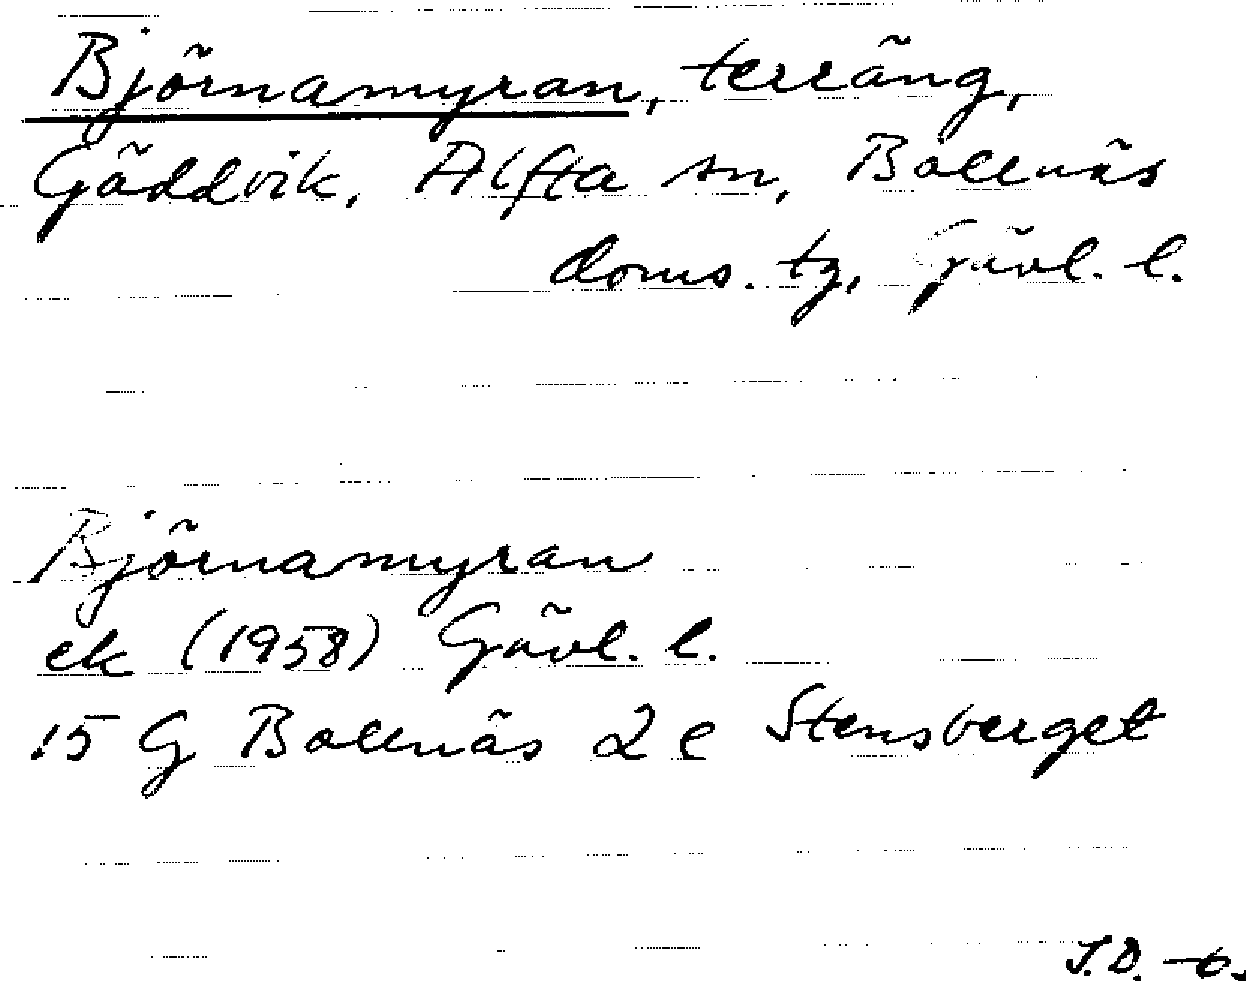 Björnamyran, terräng,
Gäddvik, Alfta sn, Bollnäs
doms. tg, Gävl. l.
Björnamyran
ek (1958) Gävl. l.
15 G Bollnäs 2 e Stensberget